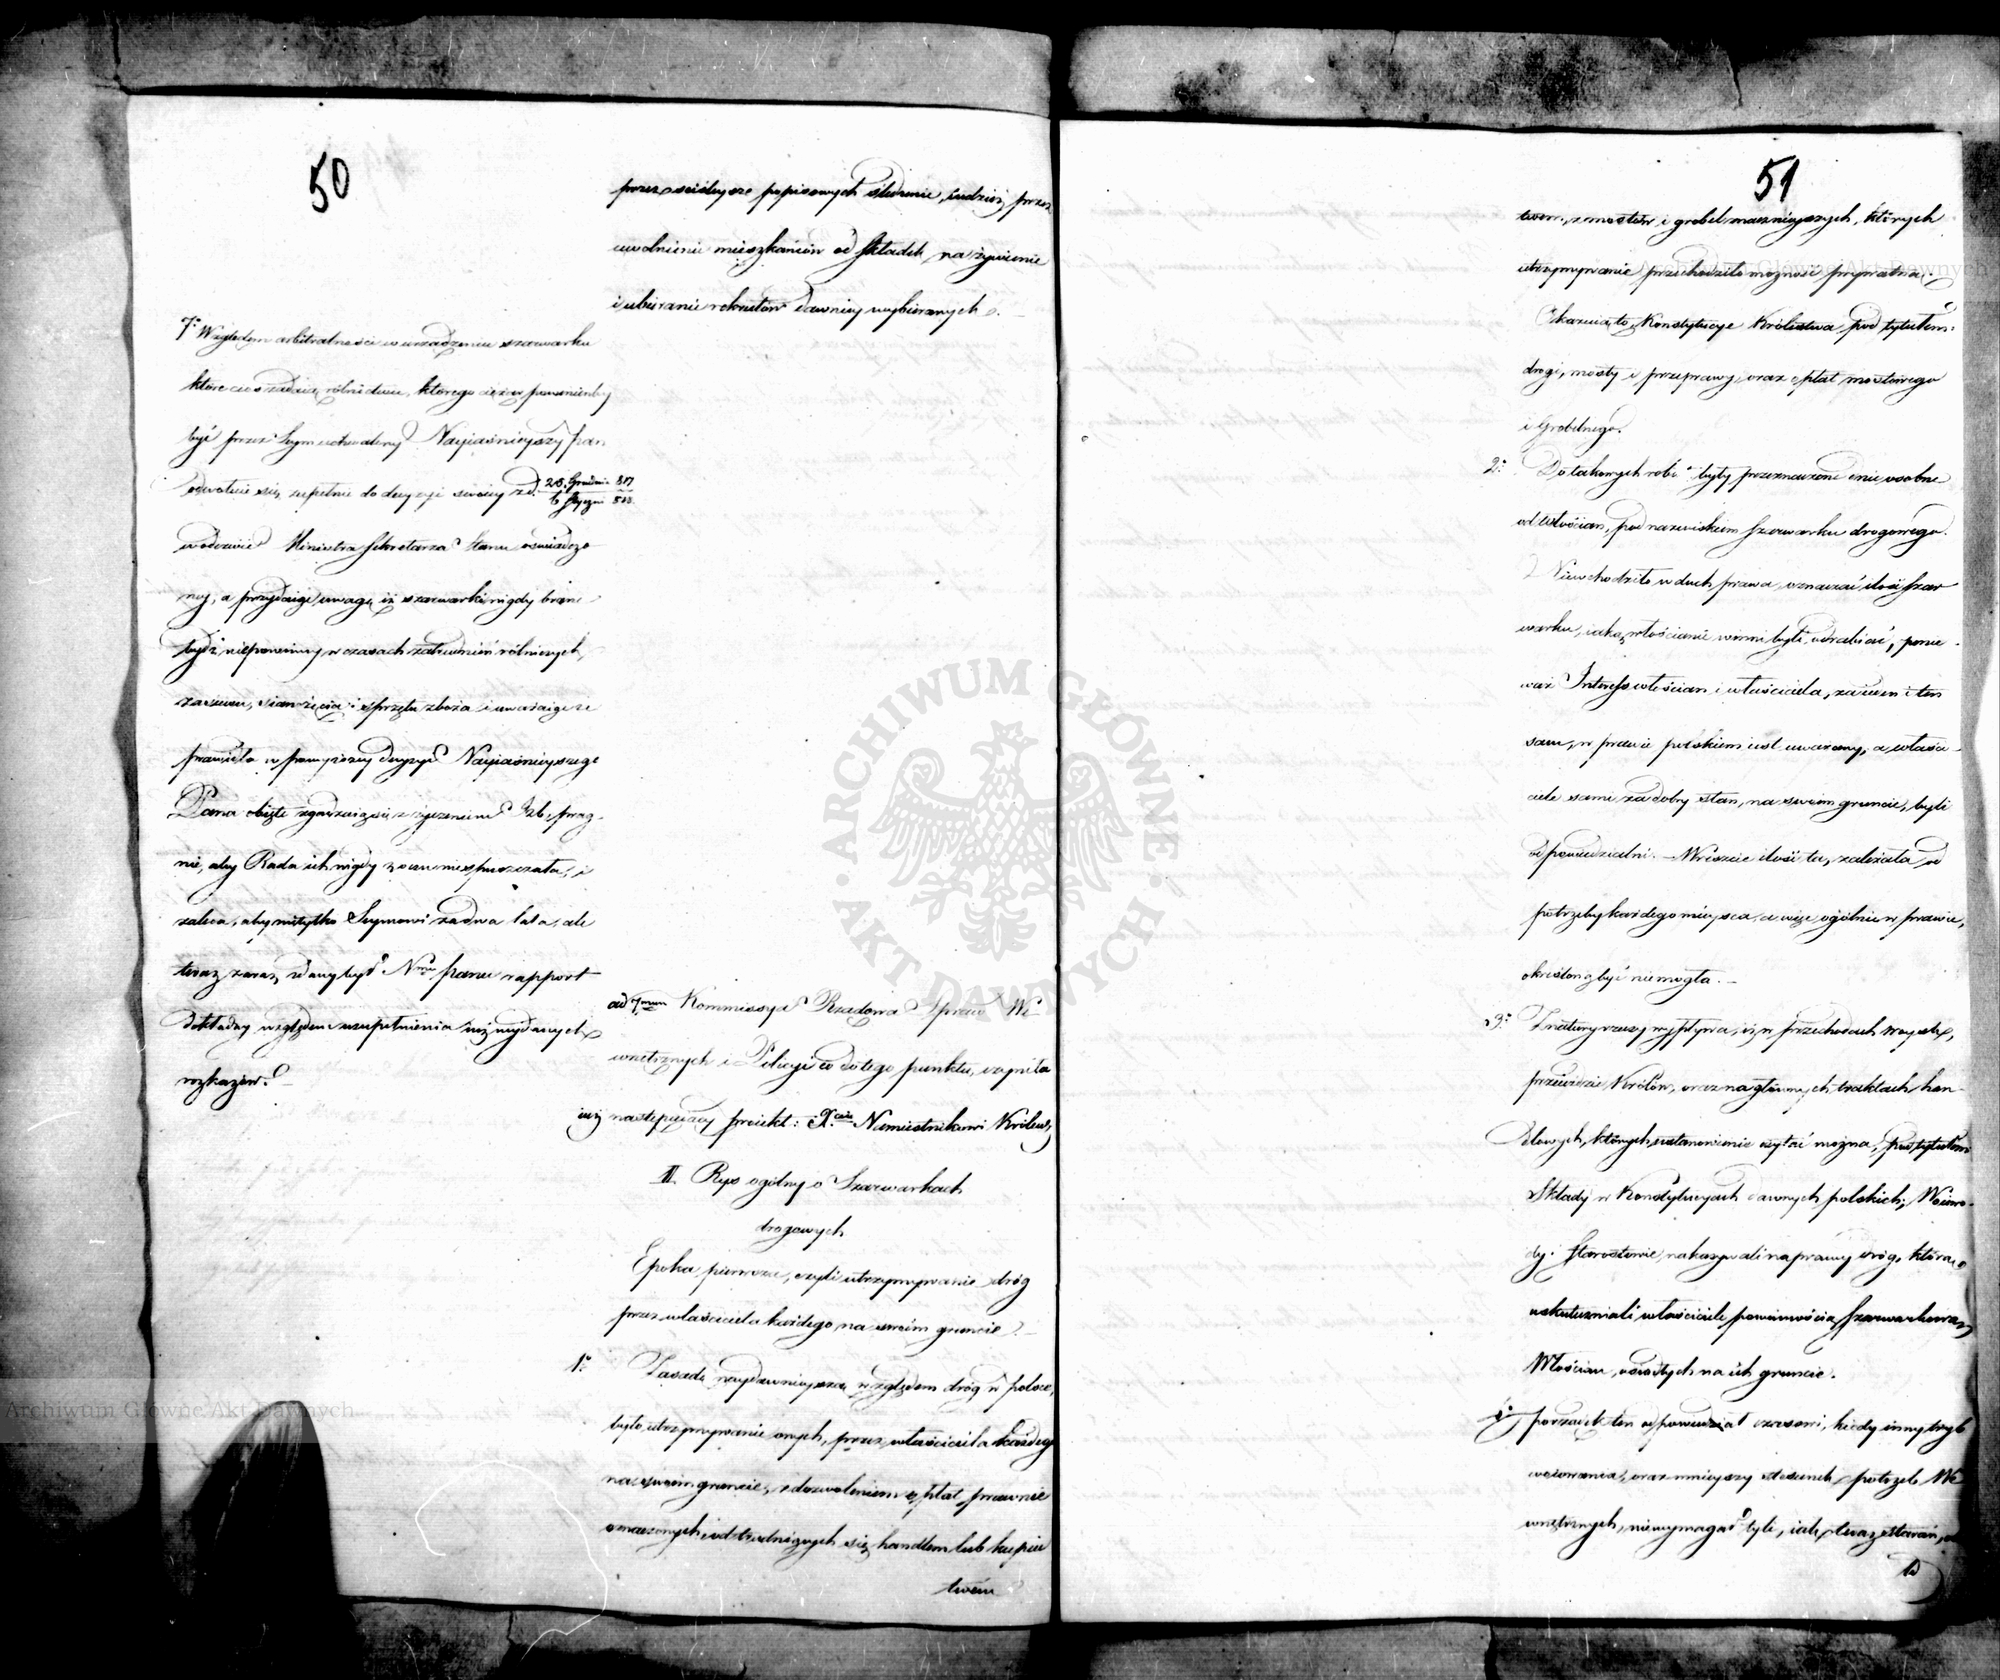 50
przez ściśleysze popisowych śledzenie, tudzież przez
uwolnienie mieszkańców od składek na żywienie
i ubieranie rekrutów dawniey wybieranych.
7° Względem arbitralności w urządzeniu szarwarku
które uciska rólnictwo, którego ciężar powinienby
być przez Seym uchwalony Nayiaśnieyszy Pan
odwołuie się zupełnie do decyzyi swoiey z d. 25. Grudnia 817
6 Stycznia 818
w odezwie Ministra Sekretarza Stanu oświadczo-
ney, a przydaiąc uwagę iż szarwarki nigdy brane
bydź niepowinny w czasach zatrudnień rólniczych,
zasiewu, sianożęcia i sprzętu zboża i uważaiąc że
prawidła w powyższey decyzyi Nayiaśnieyszego
Pana obięte zgadzaią się z życzeniem Izb, prag-
nie, aby Rada ich nigdy z oczu niespuszczała, i
zaleca, aby nietylko Seymowi za dwa lata, ale
teraz zaraz zdany był Nmu Panu rapport
dokładny względem uzupełnienia iuż wydanych
rozkazów.
ad 7mum Kommissya Rządowa Spraw We-
wnętrznych i Policyi co do tego punktu, czyniła
iuż następuiący proiekt: Xciu Namiestnikowi Królews;
II. Rys ogólny o Szarwarkach
drogowych
Epoka pierwsza, czyli utrzymywanie dróg
przez właściciela każdego na swoim gruncie.
1° Zasadą naydawnieyszą względem dróg w Polsce,
było utrzymywanie onych, przez właściciela każdego
na swoim gruncie, z dozwoleniem opłat prawnie
oznaczonych od trudniących się handlem lub kupiec
twem
51
twem, z mostów i grobel znacznieyszych, których
utrzymywanie przechodziło możność prywatną.
Okazuią to, Konstytucye Królestwa, pod tytułem:
drogi, mosty i przeprawy, oraz opłat mostowego
i grobelnego.
2° Do takowych robót były przeznaczone dnie osobne
od włościan, pod nazwiskiem Szarwarku drogowego.
Niewchodziło w duch prawa, oznaczać ilość Szar
warku, iaką włościanie winni byli odrabiać, ponie-
waż Interes włościan i właściciela, za ieden i ten
sam, w prawie polskiem iest uważany, a właści-
ciele sami za dobry stan, na swoim gruncie, byli
odpowiedzialni. Wreszcie ilość ta, zależała od
potrzeby każdego mieysca, a więc ogólnie w prawie,
określoną być niemogła.
3° Z natury rzeczy wypływa, iż w przechodach woyska,
przeieździe Królów, oraz na głównych traktach han-
dlowych, których ustanowienie czytać można, pod tytułem
Składy w Konstytucyach dawnych polskich; Woiewo-
dy i Starostowie, nakazywali naprawy dróg, które
uskuteczniali właściciele powinnością Szarwarkową
Włościan, osiadłych na ich gruncie.
4° Porządek ten odpowiedział czasowi, kiedy inny tryb
woiowania, oraz mnieyszy stosunek potrzeb We
wnętrznych, niewymagał tyle, iak teraz starań,
ARCHIWUM GŁÓWNE · AKT DAWNYCH ·
Archiwum Główne Akt Dawnych
Archiwum Główne Akt Dawnych